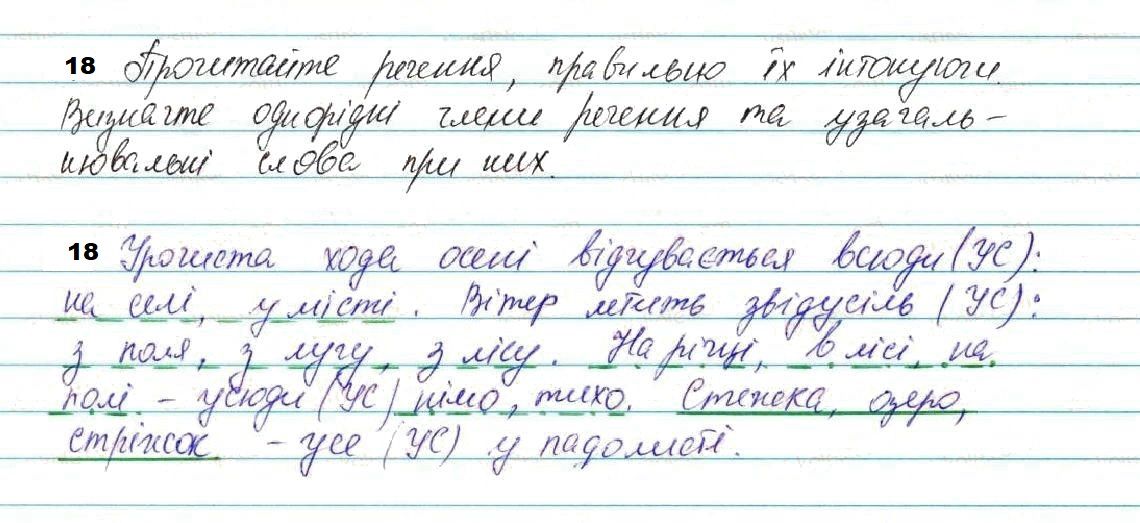 18 Прочитайте речення, правильно їх інтонуючи.
Визначте однорідні члени речення та узагаль-
нювальні слова при них.
18 Урочиста хода осені відчувається всюди (УС):
на селі, у місті. Вітер летить звідусіль (УС):
з поля, з лугу, з лісу. На річці, в лісі, на
полі - усюди (УС) німо, тихо. Стежка, озеро,
стріжок - усе (УС) у падолисті.